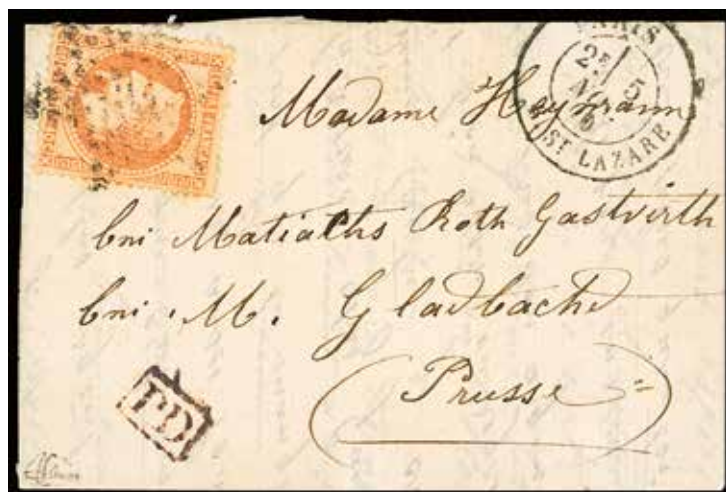 PARIS
2E 5
NOV.
70
ST LAZARE
Madame Heymann
bei Matiachs Roth Gastvirth
bei. M. Gladbache
(Prusse=)
PD